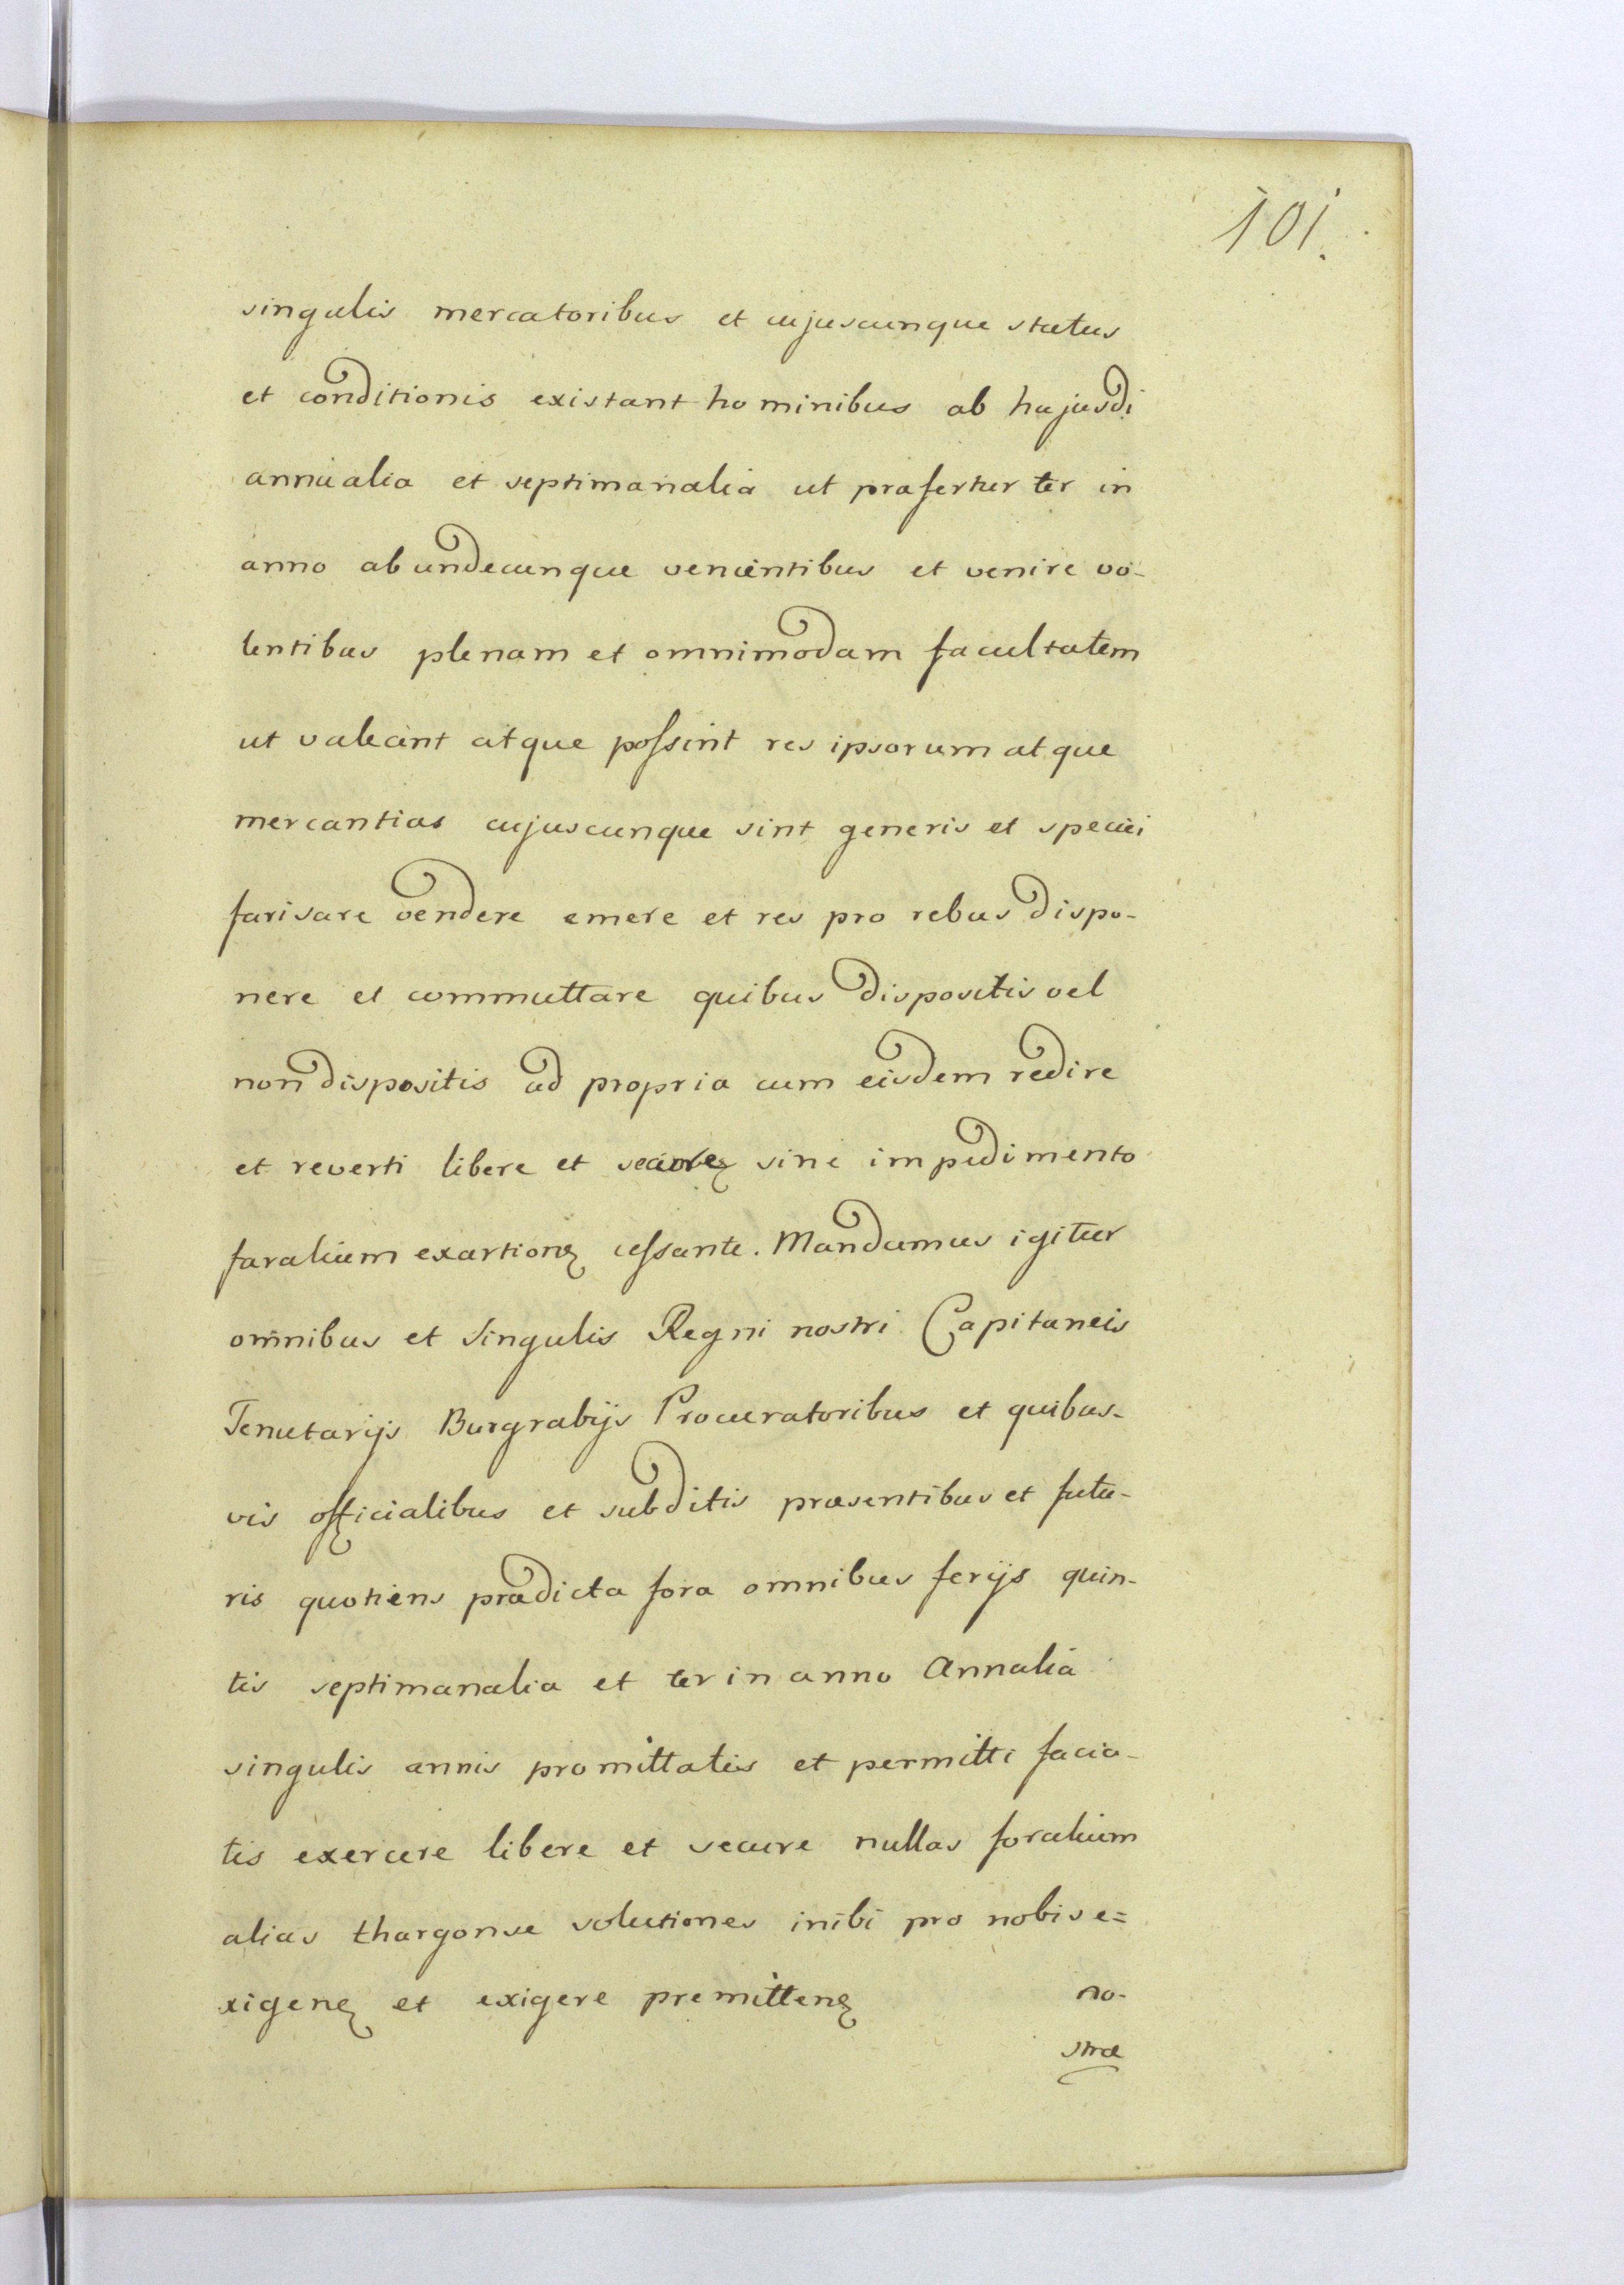 101.
singulis mercatoribus et cujuscunque status
et conditionis existant hominibus ab hujusdi
annualia et septimanalia ut præfertur ter in
anno ab undecunque venientibus et venire vo-
lentibus plenam et omnimodam facultatem
ut valeant atque possint res ipsorum atque
mercantias cujuscunque sint generis et speciei
farisare vendere emere et res pro rebus dispo-
nere et commuttare quibus dispositis vel
non dispositis ad propria cum eisdem redire
et reverti libere et sine impedimento
faralium exartionę cessante. Mandamus igitur
omnibus et Singulis Regni nostri Capitaneis
Tenutarijs Burgrabijs Procuratoribus et quibus-
vis officialibus et subditis præsentibus et futu-
ris quotiens prædicta fora omnibus ferijs quin-
tis septimanalia et ter in anno Annalia
singulis annis promittatis et permitti facia-
tis exercere libere et secure nullas foralium
alias thargonse solutiones inibi pro nobis e=
xigenę et exigere premittenę no-
stræ